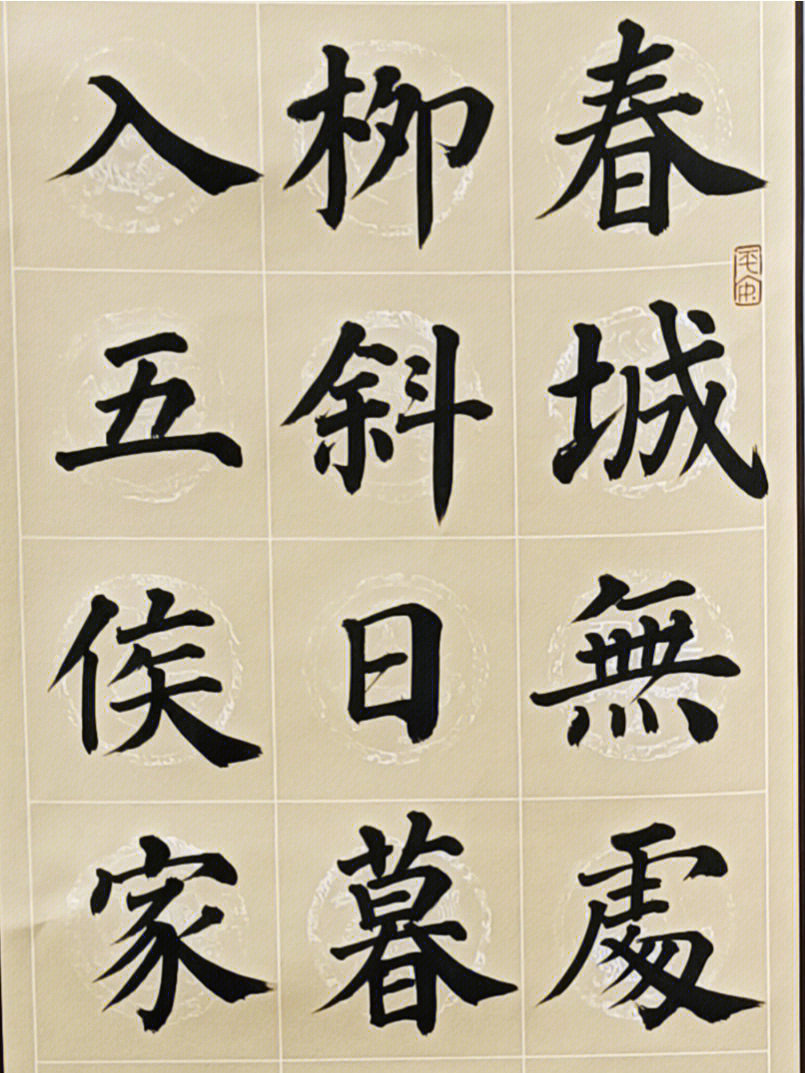 春城無處
柳斜日暮
入五侯家